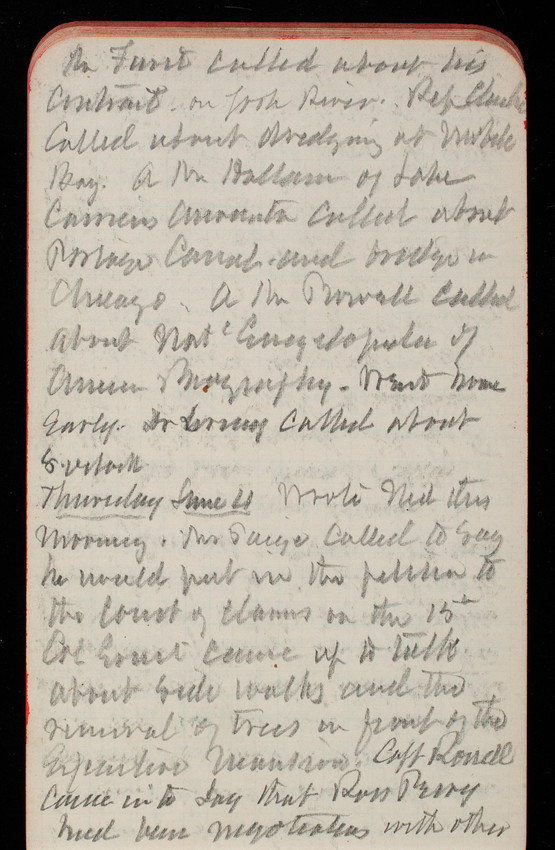 Mr Faust called about his
Contract. on York River. Rep Clarke
Called about dredging at Mobile
Bay. A Mr Hallam of Lake
Carriers called about
Portage Canal and bridge in
Chicago. A Mr Powall called
about Natl Encyclopedia of
Amer Biography. Went home
Early. Dr Loring called about

Thursday June 20 Wrote Ned this
Morning. Mr Paige called to say
he would put in the petition to
the Court of Claims on the 15th
Col Ernst came up to talk
about side walks and the
removal of trees in front of the
Executive Mansion. Capt Rowell
came in to say that Ross Perry
had been negotiations with other